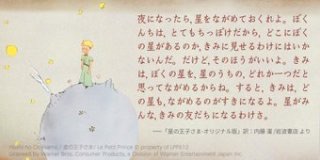 夜になったら、星をながめておくれよ。ぼく
んちは、とてもちっぽけだから、どこにぼく
の星があるのか、きみに見せるわけにはいか
ないんだ。だけど、そのほうがいいよ。きみ
は、ぼくの星を、星のうちの、どれか一つだと
思ってながめるからね。すると、きみは、ど
の星も、ながめるのがすきになるよ。星がみ
んな、きみの友だちになるわけさ。
──『星の王子さま オリジナル版』訳:内藤 濯/岩波書店 より
『星の王子さま』 Le Petit Prince © property of LPP612
Licensed by Warner Bros. Consumer Products, a Division of Warner Entertainment Japan Inc.